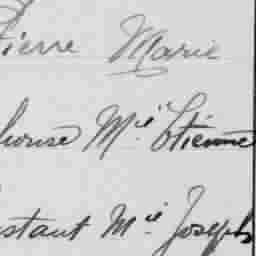 Pierre Marie
phonse M.ie Étienne
nstant M.ie Joseph